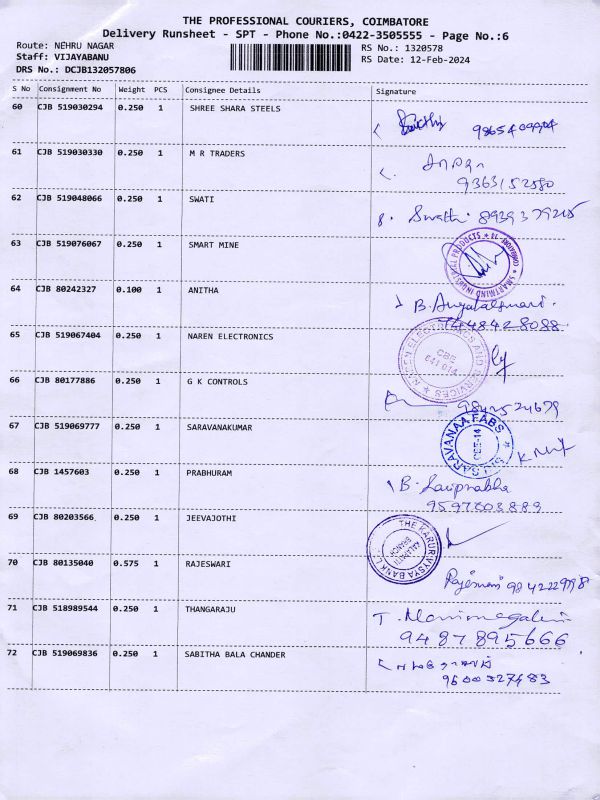 THE PROFESSIONAL COURIERS, COIMBATORE
Delivery Runsheet - SPT - Phone No.:0422-3505555 - Page No.:6
Route: NEHRU NAGAR
RS No.: 1320578
Staff: VIJAYABANU
RS Date: 12-Feb-2024
DRS No.: DCJB132057806
S No Consignment No Weight PCS Consignee Details Signature
60 CJB 519030294 0.250 1 SHREE SHARA STEELS
61 CJB 519030330 0.250 1 M R TRADERS
9363152580
62 CJB 519048066 0.250 1 SWATI
Swathi 8939379215
63 CJB 519076067 0.250 1 SMART MINE
64 CJB 80242327 0.100 1 ANITHA
7448428088
65 CJB 519067404 0.250 1 NAREN ELECTRONICS
NAREN ELECTRONICS AND SERVICES
CBE
641 014
66 CJB 80177886 0.250 1 G K CONTROLS
67 CJB 519069777 0.250 1 SARAVANAKUMAR
SARAVANAA FABS
CBE-14
68 CJB 1457603 0.250 1 PRABHURAM
B. Saiprabha
9597803889
69 CJB 80203566 0.250 1 JEEVAJOTHI
THE KARUR VYSYA BANK L
70 CJB 80135040 0.575 1 RAJESWARI
71 CJB 518989544 0.250 1 THANGARAJU
T. Manimegalai
9487895666
72 CJB 519069836 0.250 1 SABITHA BALA CHANDER
9600327483